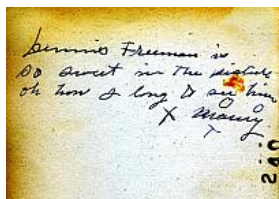 Dennis Freeman is
so sweet in the picture
oh how I long to see him
X Maury
X
240